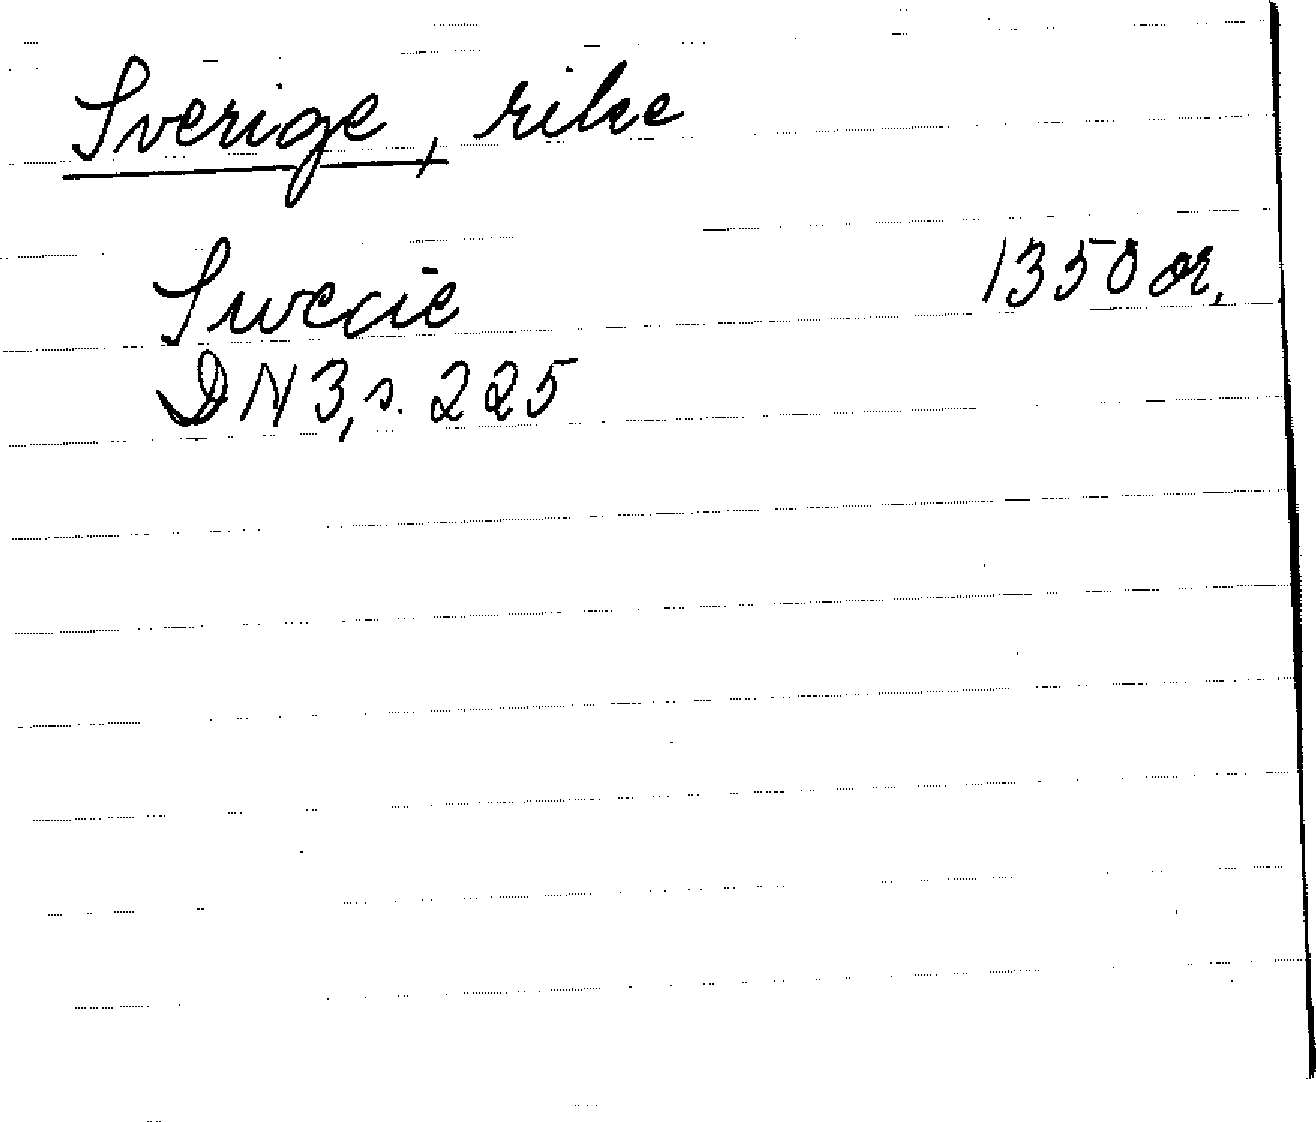 Sverige, rike
Swecie 1350 or.
DN 3, s. 225